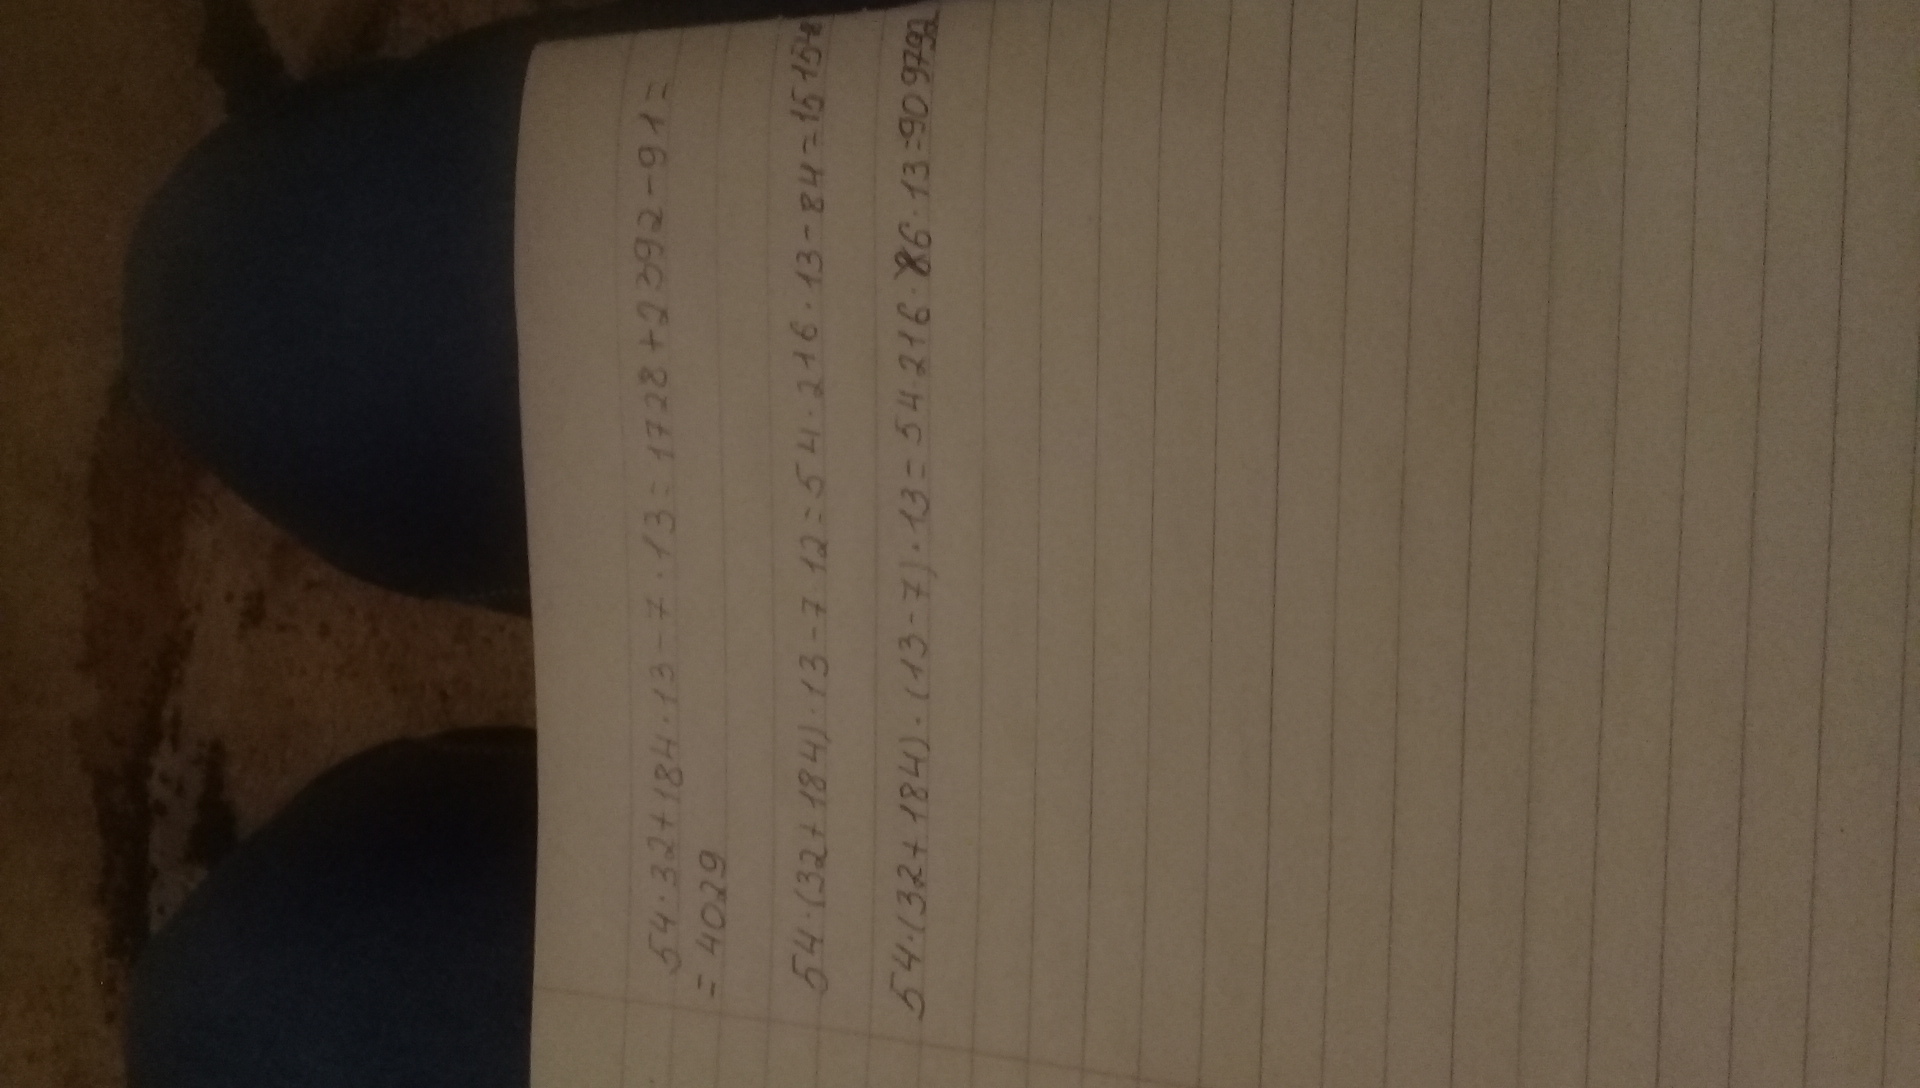 54·32+184·13-7·13=1728+2392-91=
=4029
54·(32+184)·13-7·12=54·216·13-84=15154
54·(32+184)·(13-7)·13=54·216·6·13=909792